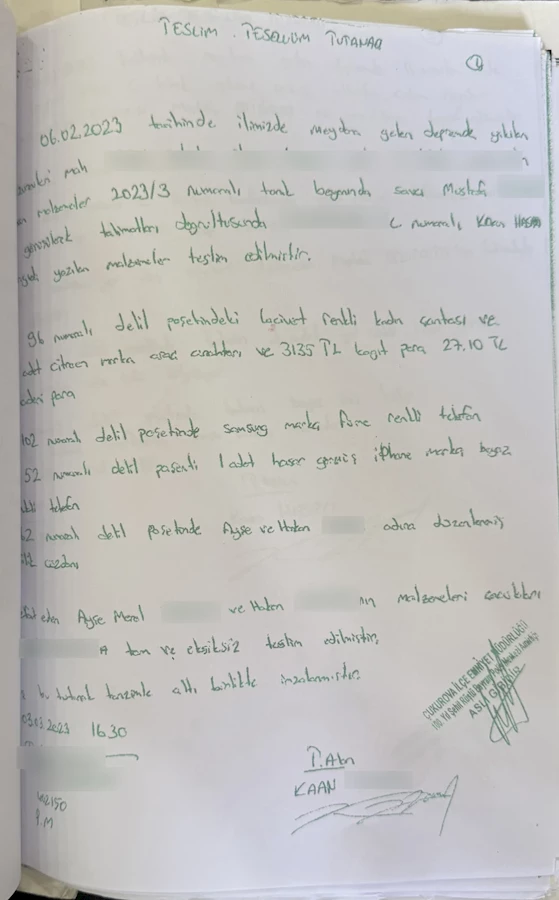 TESLİM . TESELLÜM TUTANAĞI
1
06.02.2023 tarihinde ilimizde meydana gelen depremde yıkılan
mah
malzemeler 2023/3 numaralı talimat savcı Mustafa
talimatları doğrultusunda numaralı KAAN HASAN
yazılan malzemeler teslim edilmiştir.
96 numaralı delil poşetindeki lacivert renkli kadın çantası ve
adet citroen marka araç anahtarı ve 3135 TL kağıt para 27.10 TL
para
102 numaralı delil poşetinde samsung marka füme renkli telefon
52 numaralı delil poşeti 1 adet hasar görmüş iphone marka beyaz
telefon
2 numaralı delil poşetinde Ayşe ve Hakan adına düzenlenmiş
cüzdanı
eden Ayşe Meral ve Hakan ın malzemeleri çocukları
A tam ve eksiksiz teslim edilmiştir.
tutanak tanzimle altı birlikte imzalanmıştır.
03.03.2023 16.30
ÇUKUROVA İLÇE EMNİYET MÜDÜRLÜĞÜ
ASLI GİBİDİR
T.Alan
KAAN
402150
P.M